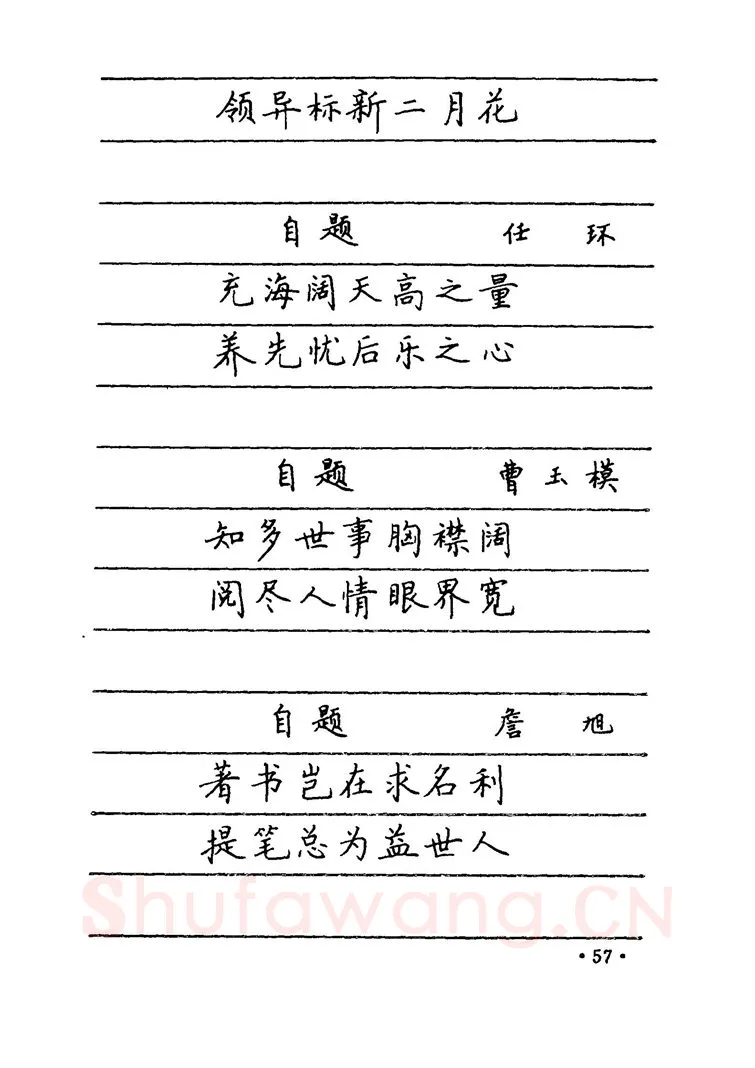 领异标新二月花
自题 任环
充海阔天高之量
养先忧后乐之心
自题 曹玉模
知多世事胸襟阔
阅尽人情眼界宽
自题 詹旭
著书岂在求名利
提笔总为益世人
Shufawang.CN
·57·